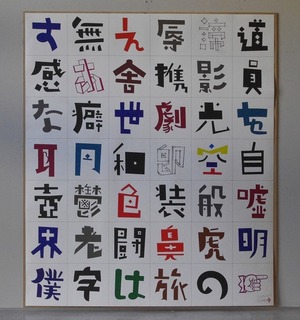 す無え辱道
感舎携影員
な癖世劇光を
耳円和空自
壺鬱色装般嘘
界老闘鼻虎明
僕字は旅の